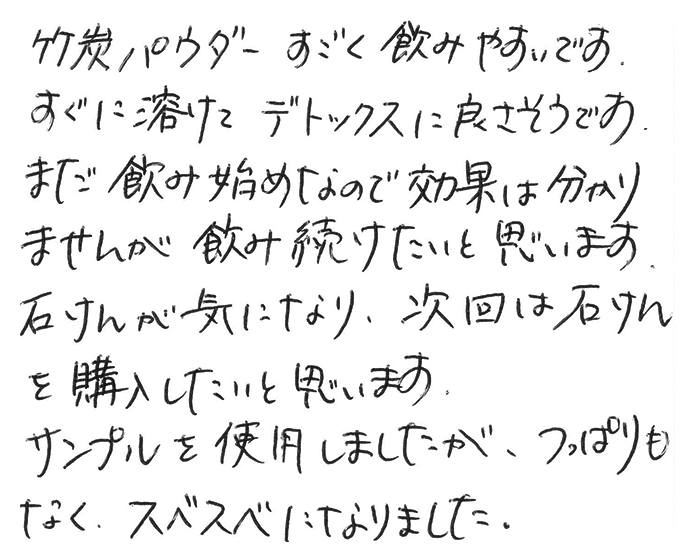 竹炭パウダー すごく飲みやすいです.
すぐに溶けて デトックスに良さそうです.
まだ飲み始めなので効果は分かり
ませんが 飲み続けたいと思います.
石けんが気になり、次回は石けん
を購入したいと思います.
サンプルを使用しましたが、つっぱりも
なく、スベスベになりました。